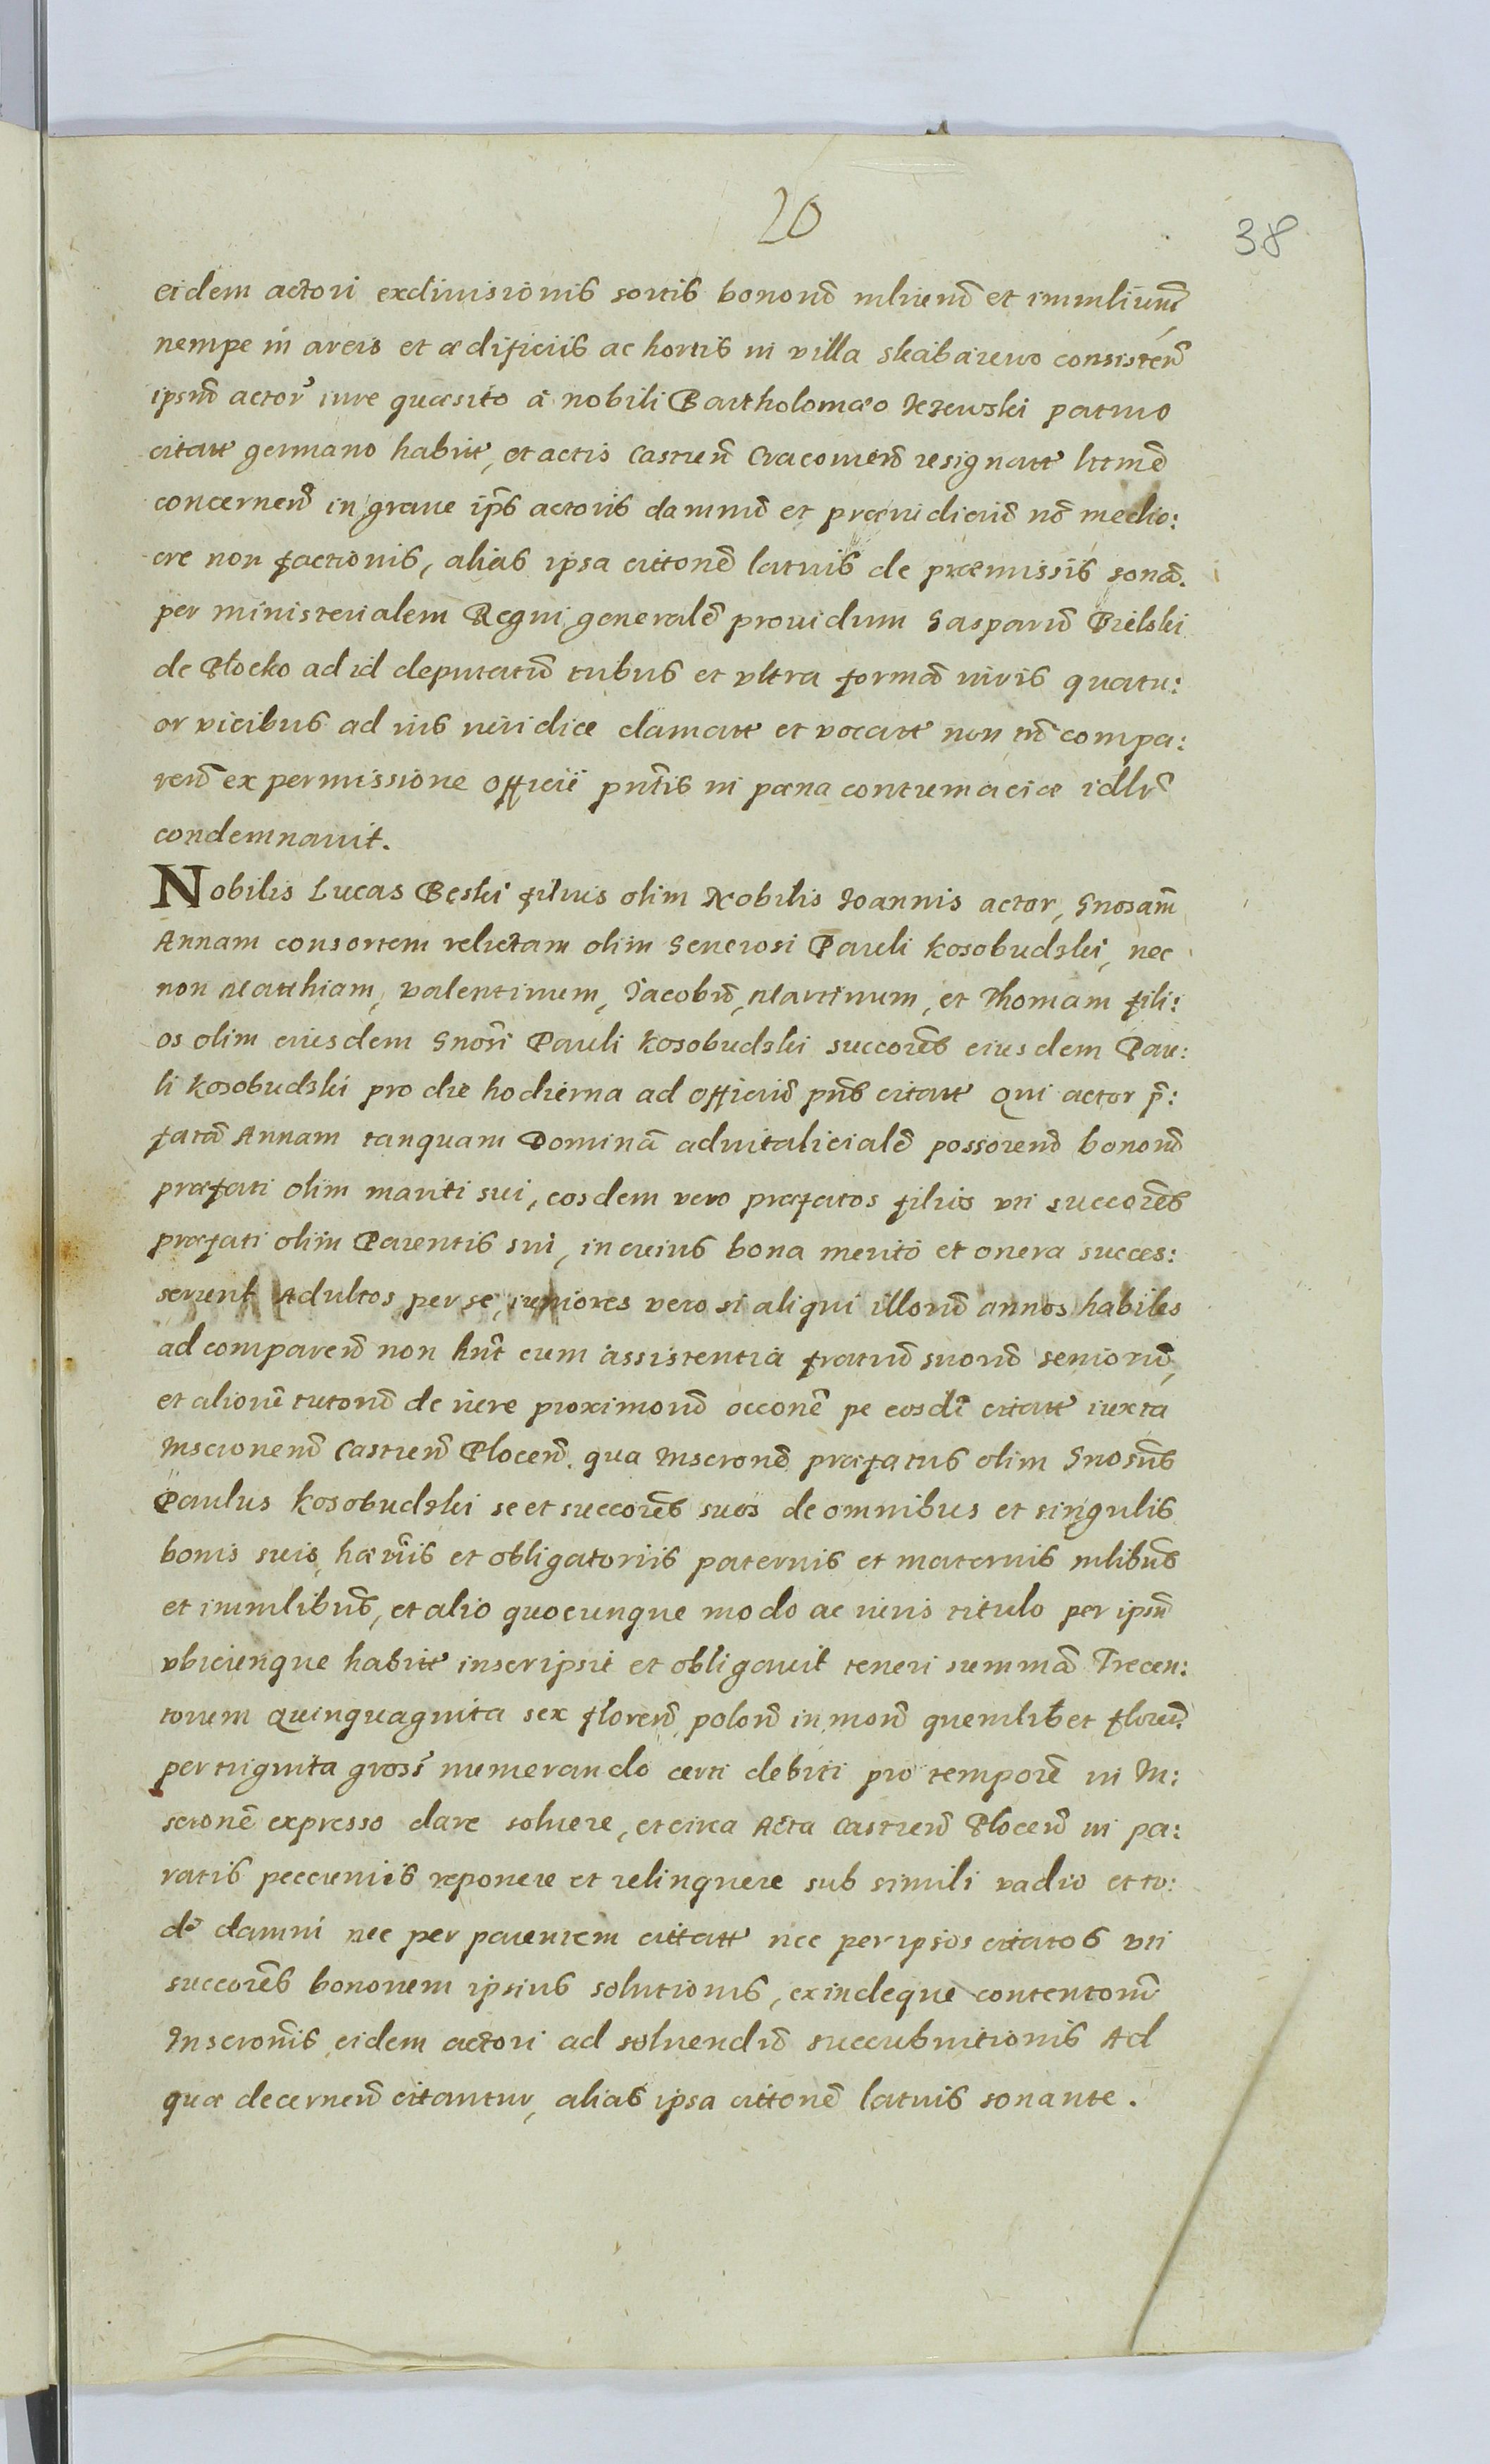 20
38
eidem actori exdiuisionis sortis bonorũ mliurũ et immliũm
nempe in areis et ædificiis ac hortis in villa skabaiewo consisteñ
ipsũ actor̃ iure quæsito a nobili Bartholomæo Jezewski patruo
citatt germano habitt, et actis Castreñ Cracouieñ resignatt lttmẽ
concerneñ in graue ip̃s actoris damnũ et præiudiciũ nõ medio:
cre non factionis, alias ipsa cittonẽ latius de præmissis sonañ.
per ministerialem Regni generalẽ prouidum Gasparũ Bielski
de Płocko ad id deputatũ tribus et vltra formã iuris quatu:
or vicibus ad ius iuridice clamatt et vocatt non tñ compa:
reñ ex permissione Officii pñtis in pæna contumaciæ idlr̃
condemnauit.
Nobilis Lucas Bęski filius olim Nobilis Joannis actor, Gnosam̃
Annam consortem relictam olim Generosi Pauli Kosobudzki, nec
non Matthiam, Valentinum, Jacobũ, Martinum, et Thomam fili:
os olim eiusdem Gnosi Pauli Kosobudzki succorẽs eiusdem Pau:
li Kosobudzki pro die hodierna ad Officiũ pñs citatt Qui actor p̃:
fatã Annam tanquam Dominã aduitalicialẽ possoreñ bonorũ
præfati olim mariti sui, eosdem vero præfatos filios vti succorẽs
præfati olim Parentis sui, in cuius bona merito et onera succes:
serunt Adultos per se, iuniores vero si aliqui illorũ annos habiles
ad compareñ non hñt cum assistentia fratrũ suorũ seniorũ,
et aliorũ tutorũ de iure proximorũ occonẽ pe eosdẽ citatt iuxta
Inscronem̃ Castreñ Ploceñ. qua Inscronẽ præfatus olim Gnosũs
Paulus Kosobudzki se et succorẽs suos de omnibus et singulis
bonis suis hæriis et obligatoriis paternis et maternis mlibũs
et immlibũs, et alio quocunque modo ac iuris titulo per ipsũ
vbicunque habitt inscripsit et obligauit teneri summã Trecen:
torum Quinquaginta sex floreñ poloñ in moñ quemlibet floreñ
per triginta gross̃ numerando certi debiti pro temporẽ in In:
scronẽ expresso dare soluere, et circa Acta Castreñ Ploceñ in pa:
ratis peccuniis reponere et relinquere sub simili vadio et to:
dẽ damni nec per parentem cittatt nec per ipsos citatos vti
succorẽs bonorum ipsius solutionis, exindeque contentorũ
Inscronis, eidem actori ad soluendũ succubuitionis Ad
quæ decerneñ citantur, alias ipsa cittonẽ latius sonante.